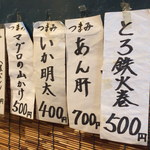 とろ鉄火巻
500円
つまみ
あん肝
700円
つまみ
いか明太
400円
つまみ
マグロの山かけ
500円